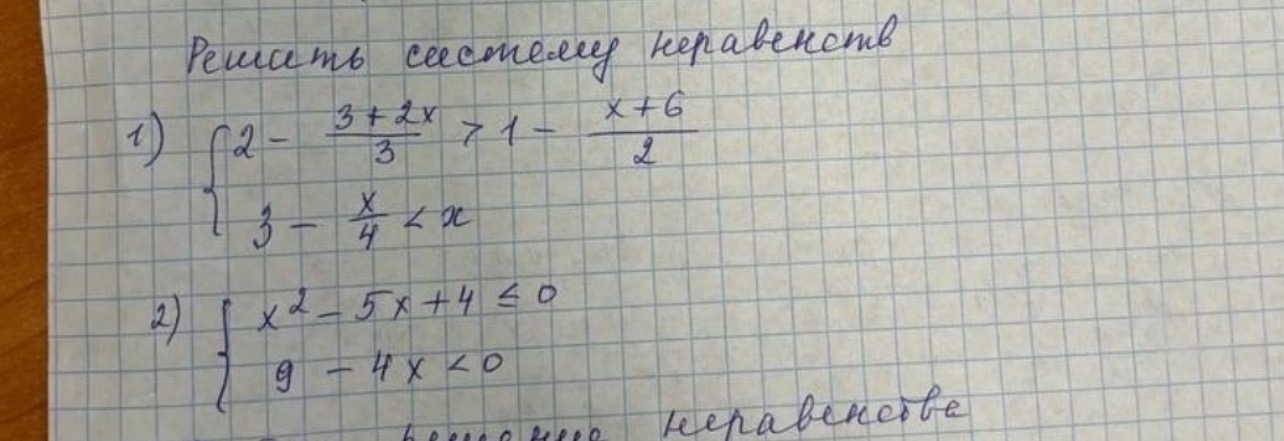 Решить систему неравенств
1) { 2 - \frac{3+2x}{3} > 1 - \frac{x+6}{2}
3 - \frac{x}{4} < x
2) { x² - 5x + 4 ≤ 0
9 - 4x < 0
неравенства